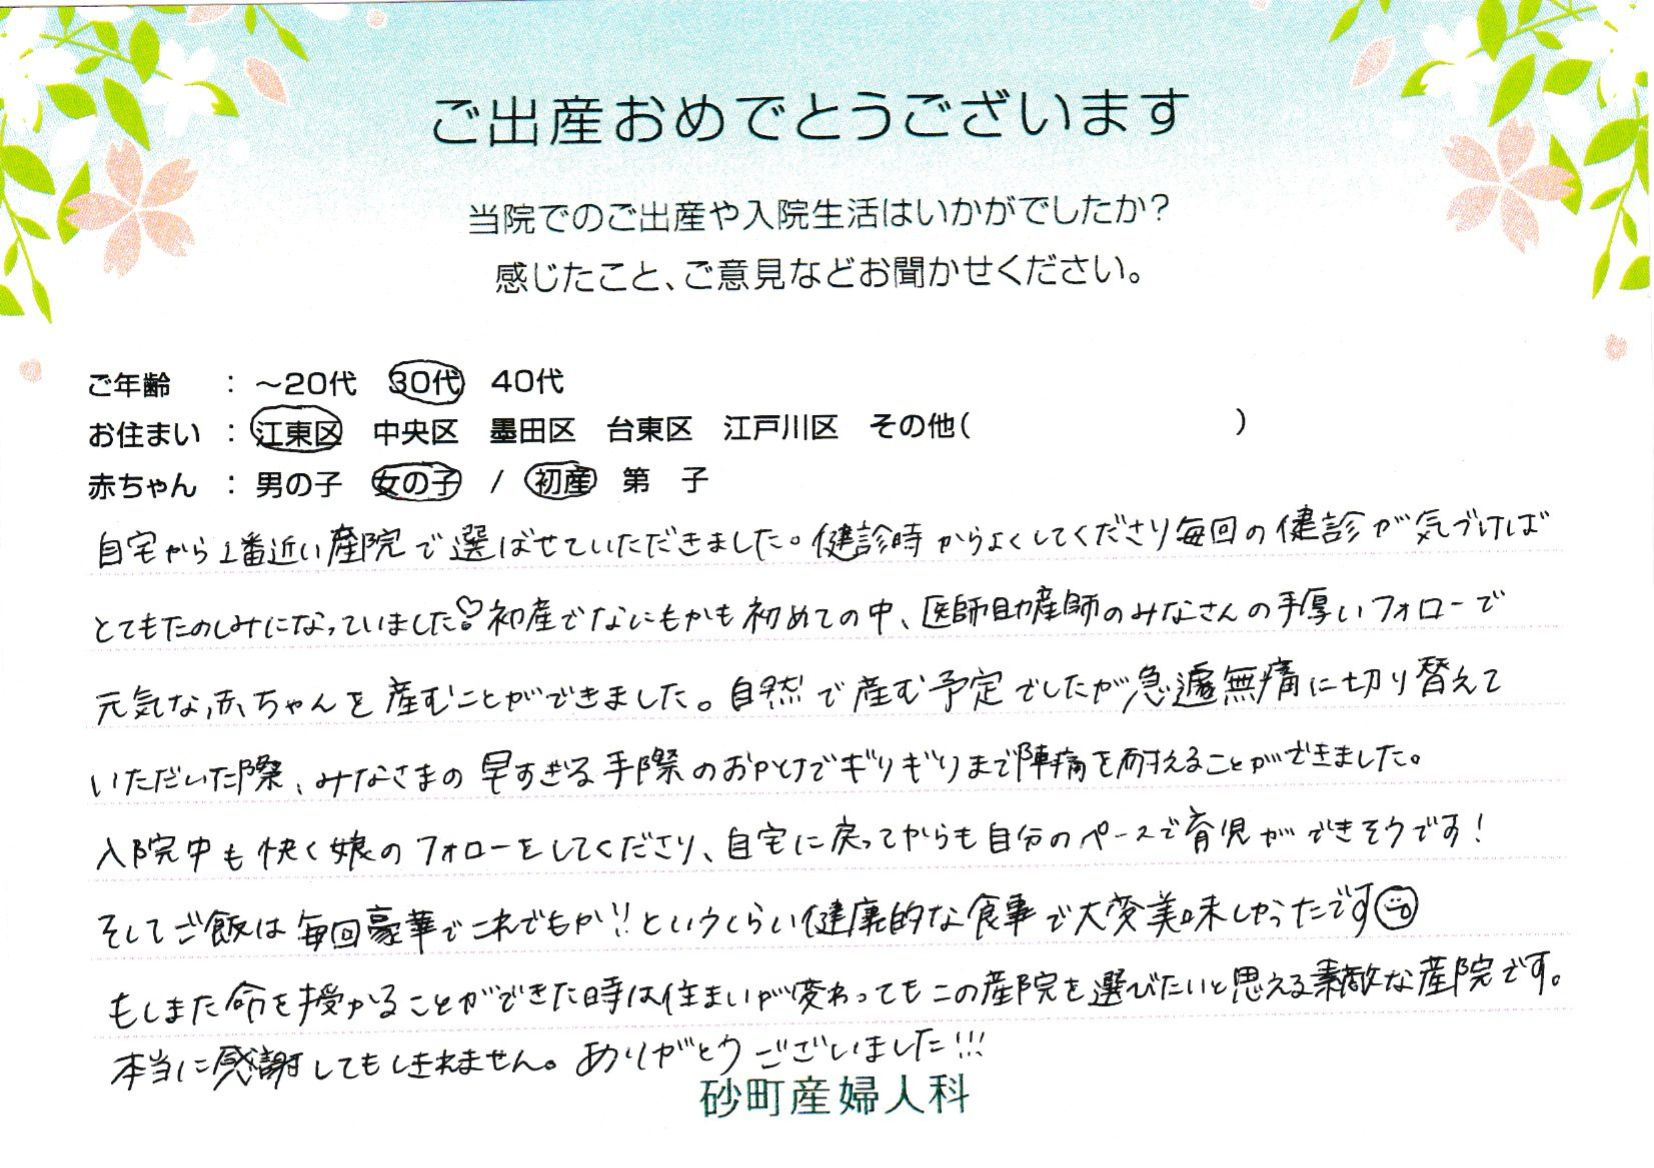 ご出産おめでとうございます
当院でのご出産や入院生活はいかがでしたか?
感じたこと、ご意見などお聞かせください。
ご年齢 : ~20代 30代 40代
お住まい : 江東区 中央区 墨田区 台東区 江戸川区 その他( )
赤ちゃん : 男の子 女の子 / 初産 第 子
自宅から1番近い産院で選ばせていただきました。健診時からよくしてくださり毎回の健診が気づけば
とてもたのしみになっていました♡!初産でなにもかも初めての中、医師助産師のみなさんの手厚いフォローで
元気な赤ちゃんを産むことができました。自然で産む予定でしたが急遽無痛に切り替えて
いただいた際、みなさまの早すぎる手際のおかげでギリギリまで陣痛を耐えることができました。
入院中も快く娘のフォローをしてくださり、自宅に戻ってからも自分のペースで育児ができそうです!
そしてご飯は毎回豪華でこれでもか!!というくらい健康的な食事で大変美味しかったです☺
もしまた命を授かることができた時は住まいが変わってもこの産院を選びたいと思える素敵な産院です。
本当に感謝してもしきれません。ありがとうございました!!!
砂町産婦人科